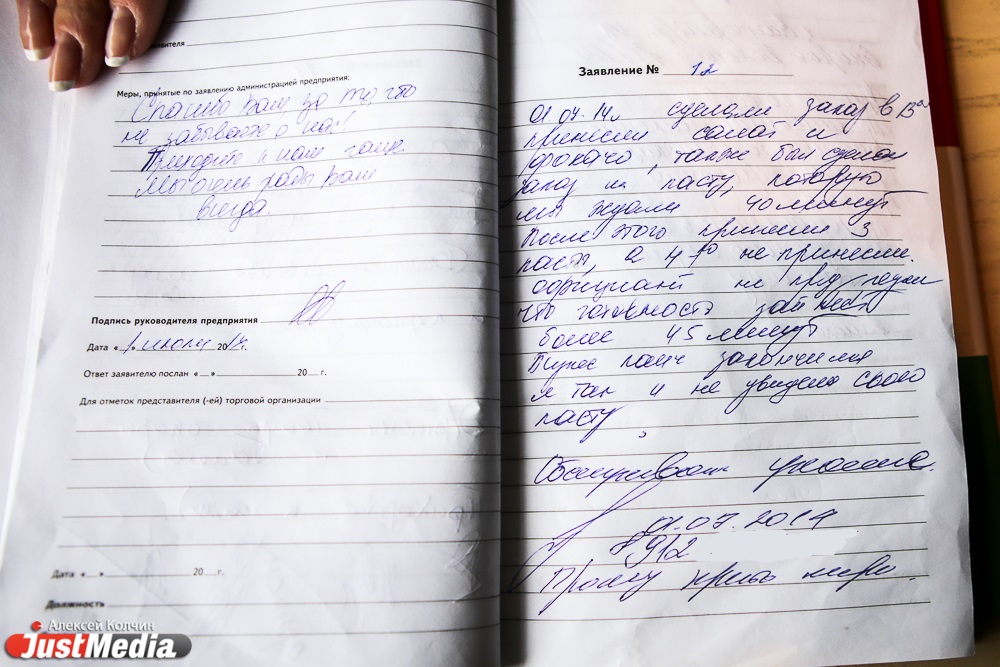 явителя
Меры, принятые по заявлению администрацией предприятия:
Спасибо Вам за то, что
не забываете о нас!
Приходите к нам чаще.
Мы очень рады Вам
всегда.
Подпись руководителя предприятия
Дата « 1 » июля 2014 г.
Ответ заявителю послан « __ » 20 __ г.
Для отметок представителя (-ей) торговой организации
Дата « __ » 20 __ г.
Должность
Заявление № 12
сделали заказ в 13
принесли салат и
также был сделан
заказ на пасту, которую
мы ждали 40 минут
После этого принесли 3
пасты, а 4-ю не принесли.
официант не предупредил
что готовность займет
более 45 минут
ланч закончился
я так и не увидела свою
пасту
Обслуживание ужасное.
01.07.2014
8 912
Прошу принять меры.
Алексей Колчин
JustMedia